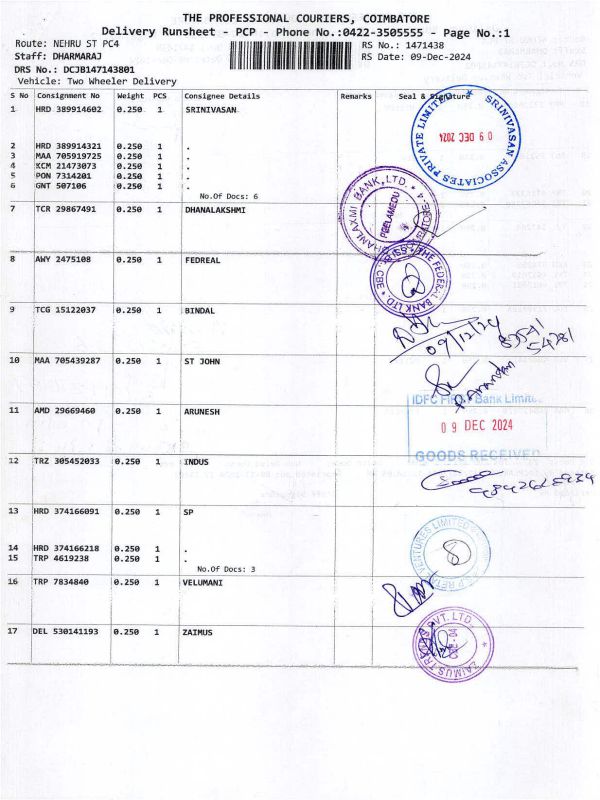 THE PROFESSIONAL COURIERS, COIMBATORE
Delivery Runsheet - PCP - Phone No.:0422-3505555 - Page No.:1
Route: NEHRU ST PC4
RS No.: 1471438
Staff: DHARMARAJ
RS Date: 09-Dec-2024
DRS No.: DCJB147143801
Vehicle: Two Wheeler Delivery
S No Consignment No Weight PCS Consignee Details Remarks Seal & Signature
1 HRD 389914602 0.250 1 SRINIVASAN
SRINIVASAN ASSOCIATES PRIVATE LIMITED
09 DEC 2024
2 HRD 389914321 0.250 1 .
3 MAA 705919725 0.250 1 .
4 KCM 21473073 0.250 1 .
5 PON 7314201 0.250 1 .
6 GNT 507106 0.250 1 .
No.Of Docs: 6
7 TCR 29867491 0.250 1 DHANALAKSHMI
BANK, LTD.
PEELAMEDU
8 AWY 2475108 0.250 1 FEDREAL
THE FEDERAL BANK LTD
CBE
9 TCG 15122037 0.250 1 BINDAL
09/12/24
54281
10 MAA 705439287 0.250 1 ST JOHN
11 AMD 29669460 0.250 1 ARUNESH
IDFC FIRST Bank Limited
09 DEC 2024
GOODS RECEIVED
12 TRZ 305452033 0.250 1 INDUS
13 HRD 374166091 0.250 1 SP
VENTURES LIMITED
14 HRD 374166218 0.250 1 .
15 TRP 4619238 0.250 1 .
No.Of Docs: 3
16 TRP 7834840 0.250 1 VELUMANI
17 DEL 530141193 0.250 1 ZAIMUS
ZAIMUS PVT. LTD.